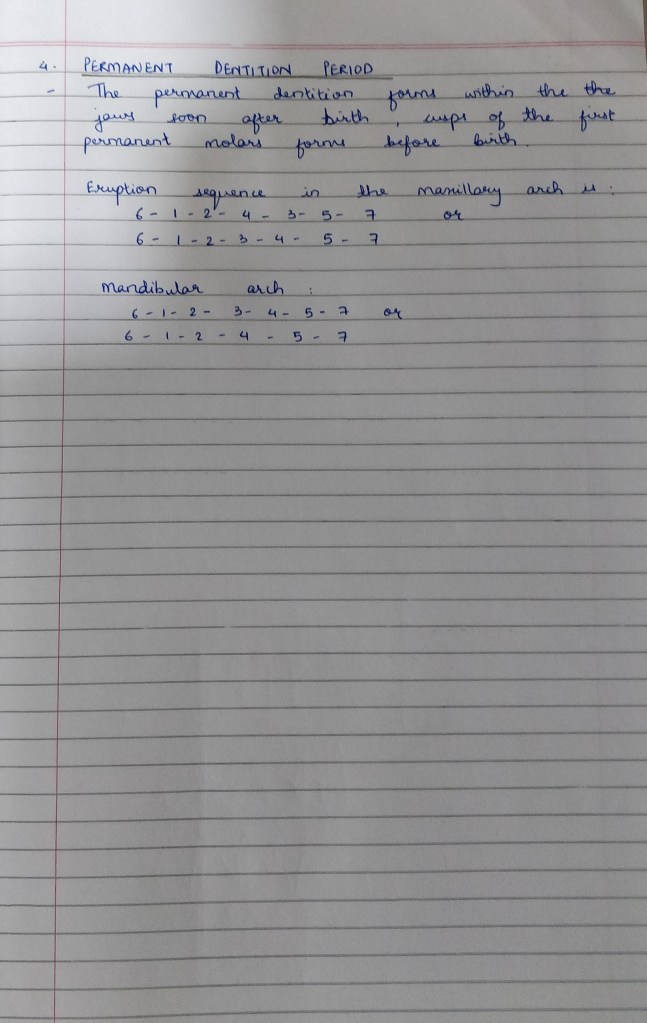 4. PERMANENT DENTITION PERIOD
- The permanent dentition forms within the the
jaws soon after birth, cusps of the first
permanent molars forms before birth.
Eruption sequence in the maxillary arch is:
6 - 1 - 2 - 4 - 3 - 5 - 7 or
6 - 1 - 2 - 3 - 4 - 5 - 7
Mandibular arch :
6 - 1 - 2 - 3 - 4 - 5 - 7 or
6 - 1 - 2 - 4 - 5 - 7